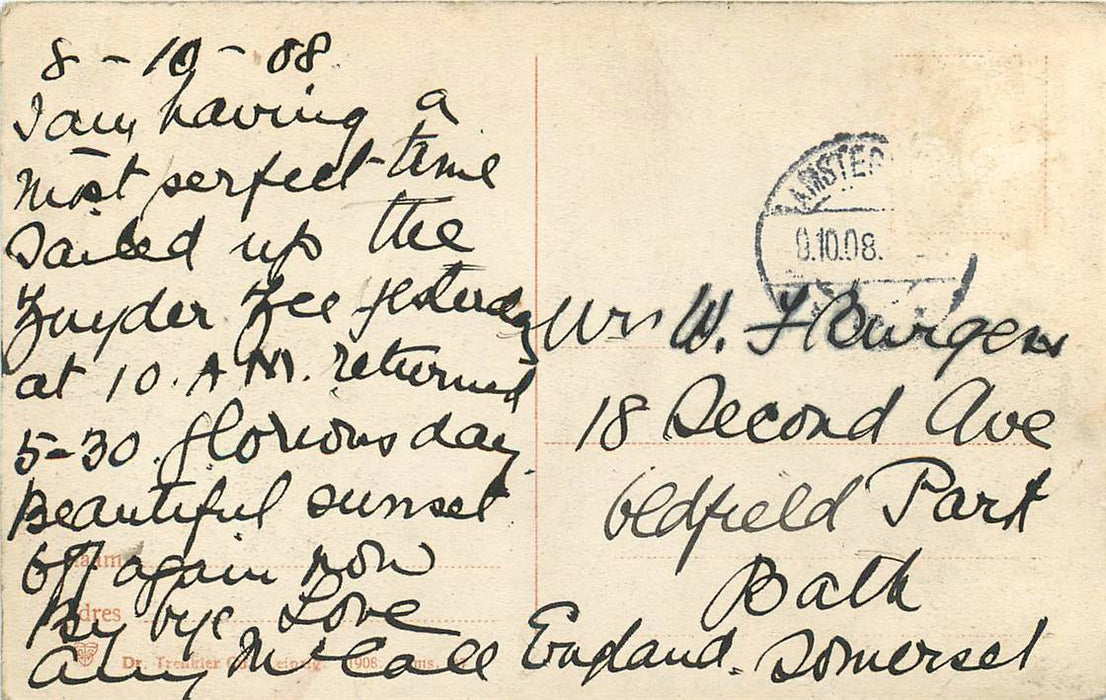 8-10-08
I am having a
most perfect time
Sailed up the
Zuyder Zee yesterday
at 10.A.M. returned
5-30. glorious day
Beautiful sunset
off again now
By bye Love
Amy McCall
Naam
Adres
Dr. Trenkler Co., Leipzig. 1908. Ams.
AMSTE
9.10.08.
Mrs W. F Burgess
18 Second Ave
Oldfield Park
Bath
England. Somerset